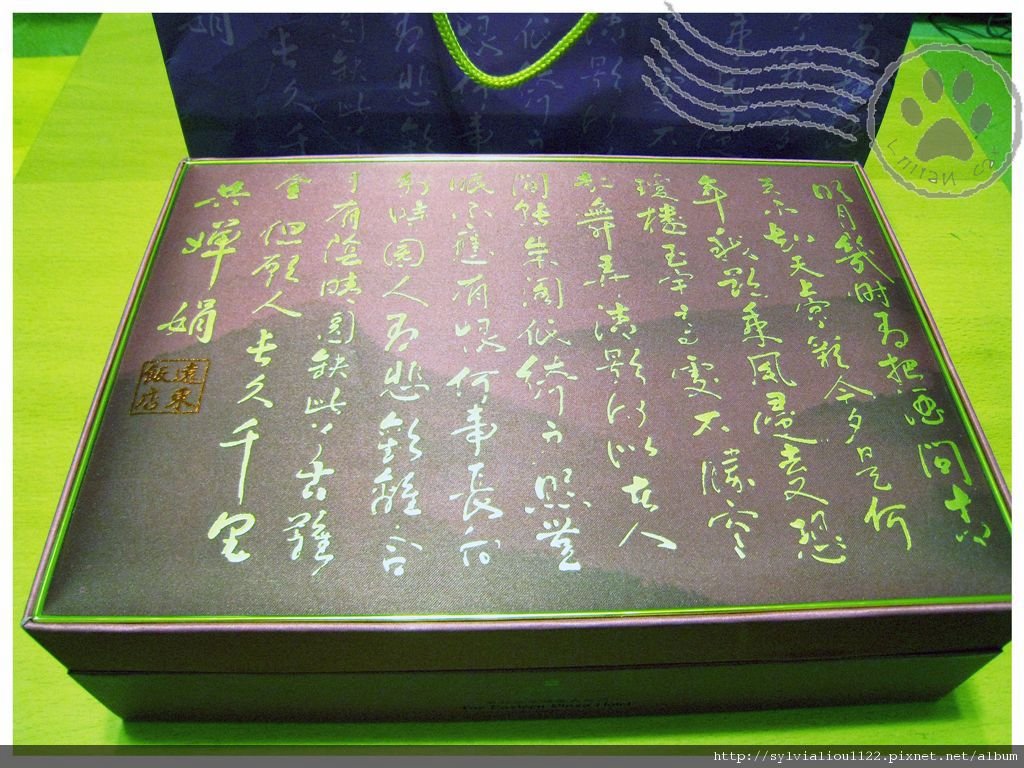 明月幾時有把酒問青
天不知天上宮闕今夕是何
年我欲乘風歸去又恐
瓊樓玉宇高處不勝寒
起舞弄清影何似在人
間轉朱閣低綺戶照無
眠不應有恨何事長向
別時圓人有悲歡離合
月有陰晴圓缺此事古難
全但願人長久千里
共嬋娟
遠東
飯店
Far Eastern Plaza Hotel
http://sylvialiou1122.pixnet.net/album